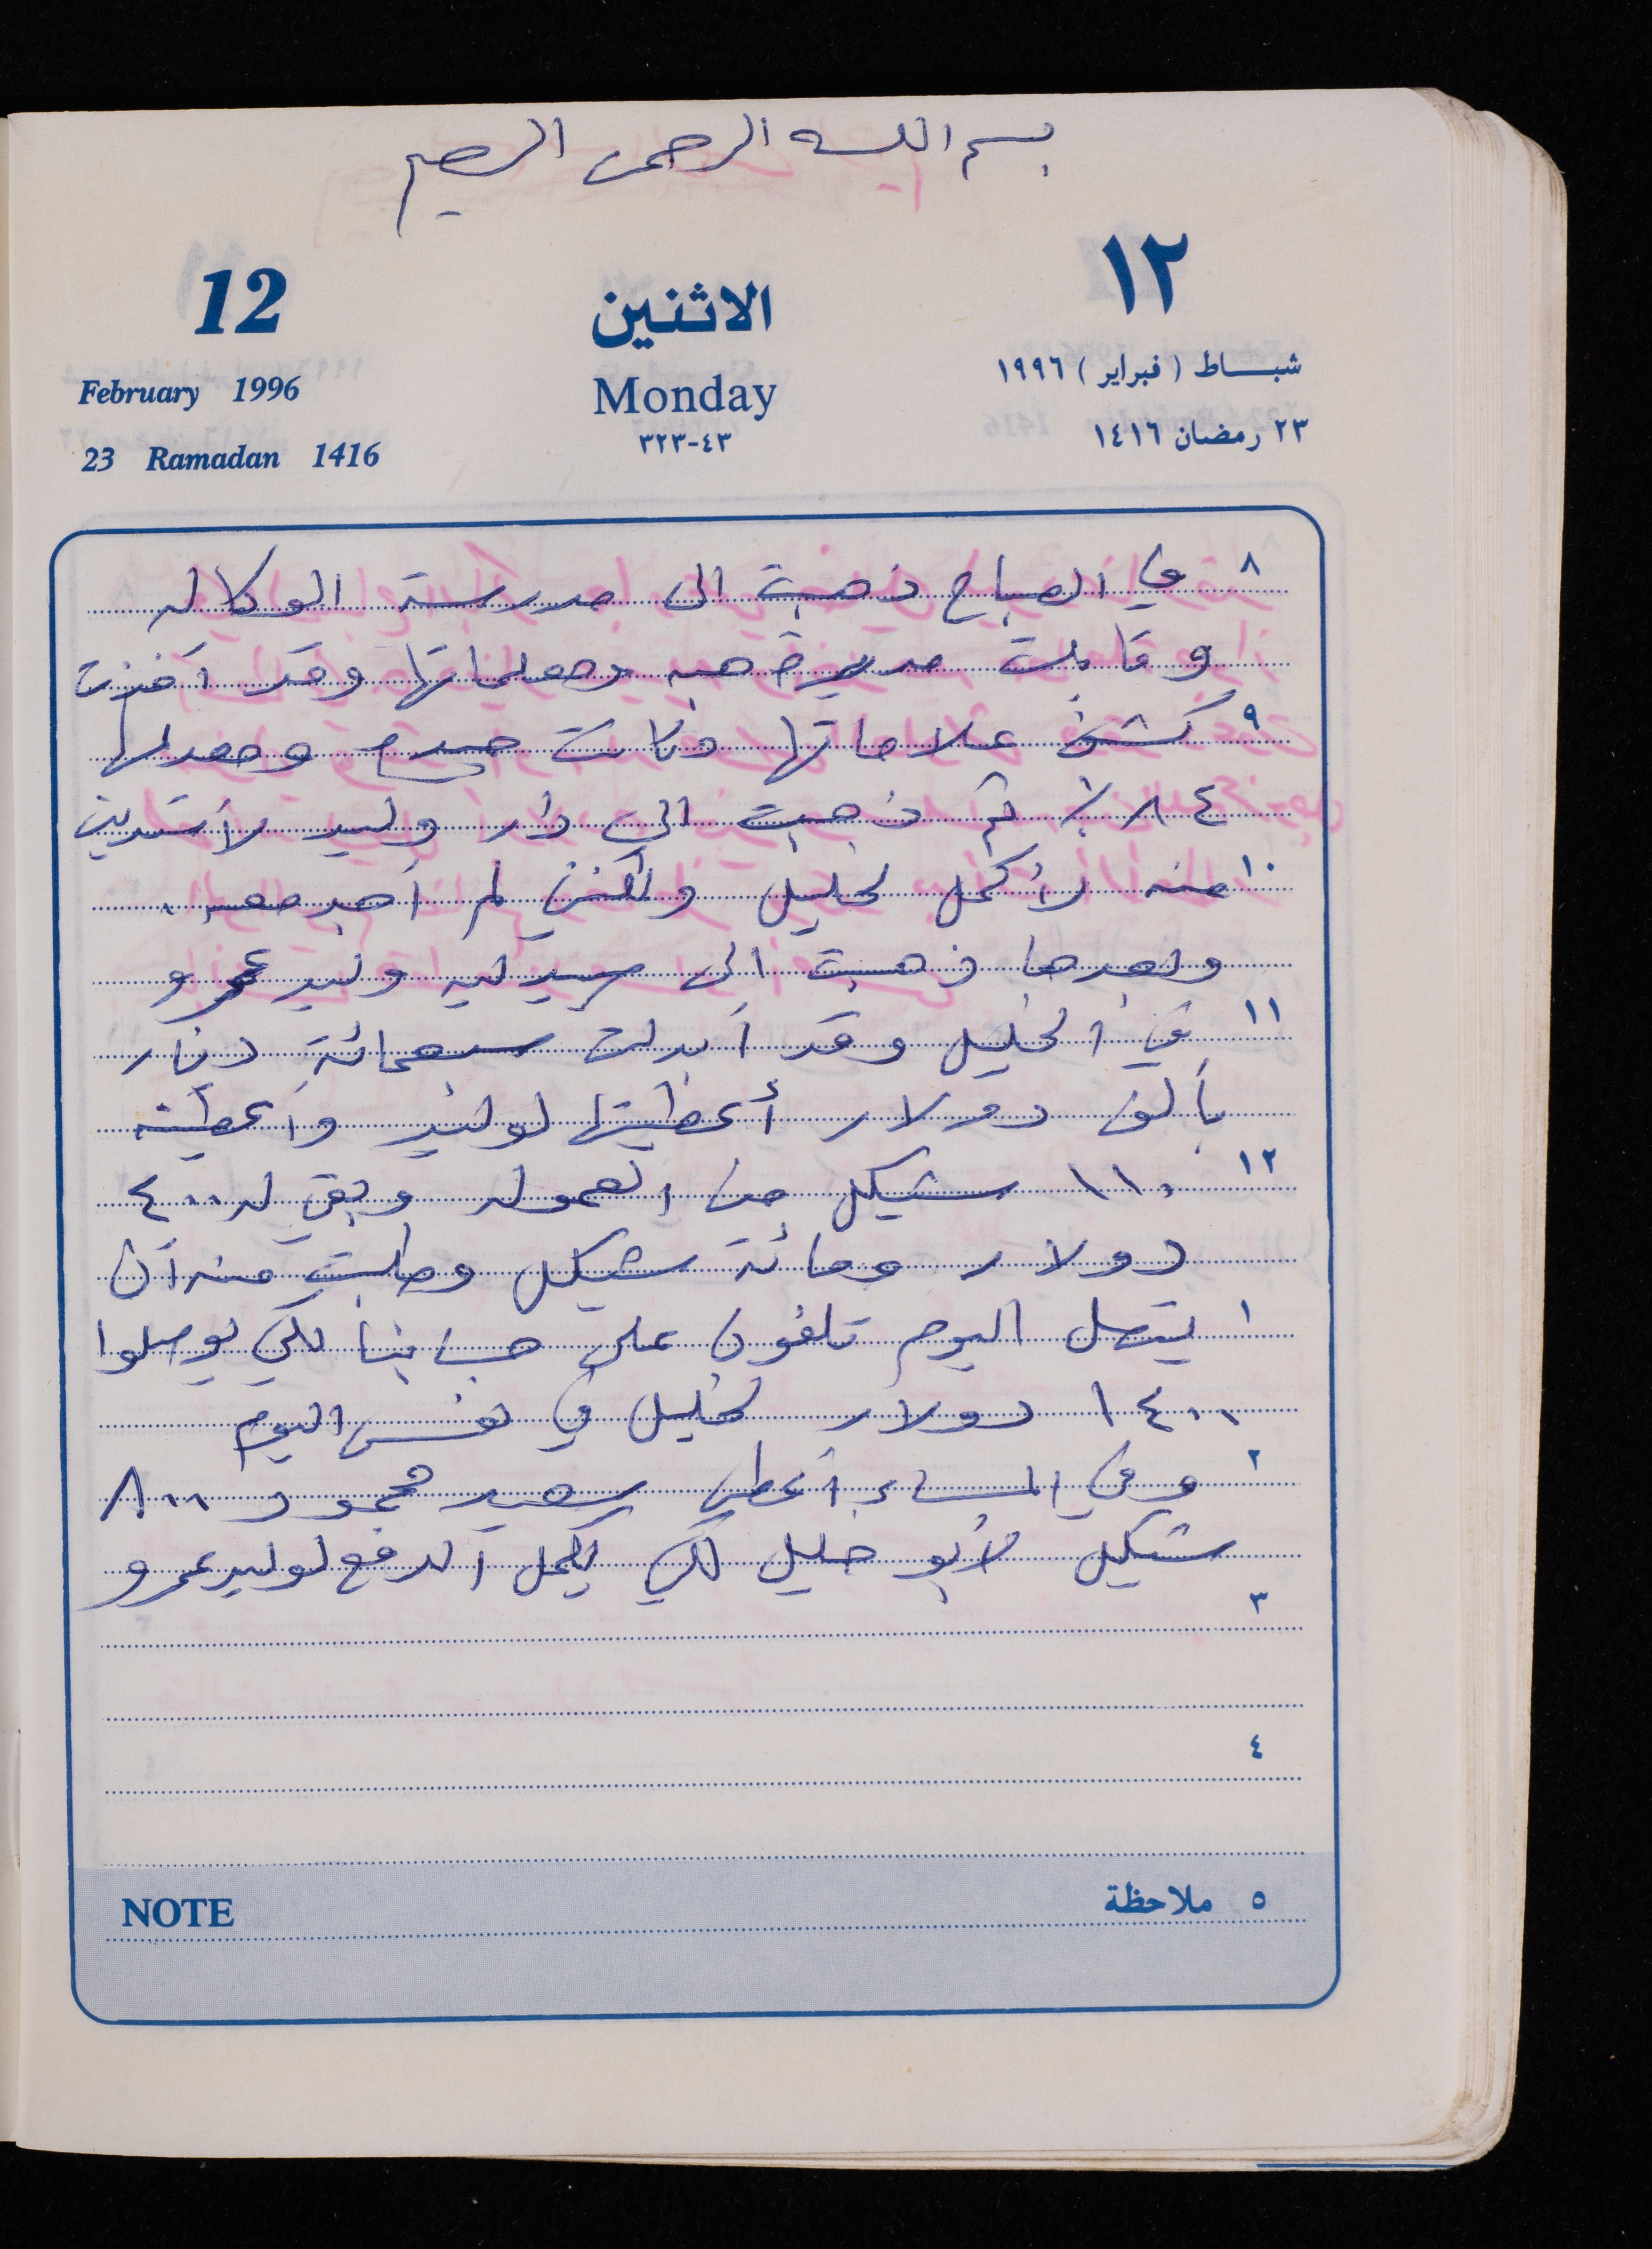 بسم الله الرحمن الرحيم
12
الاثنين
١٢
February 1996
Monday
شباط (فبراير) ١٩٩٦
23 Ramadan 1416
٣٢٣-٤٣
٢٣ رمضان ١٤١٦
٨ في الصباح ذهبت الى مدرسة الوكاله
وقابلت مديرة هبه ومعلماتها وقد أخذت
٩ كشف علاماتها وكانت جيدة ومعدلها
٨٤٪ ثم ذهبت الى دار وليد لأستدين
١٠ منه لأكمل لخليل ولكن لم أجد معه.
وبعدها ذهبت الى وليد عمرو
١١ في الخليل وقد أبدلت سبعمائة دينار
بألف دولار أعطيتها لوليد وأعطيته
١٢ ١١٠ شيكل من العموله وبقي له ٤٠٠
دولار ومائة شيكل وطلبت منه أن
١ يتصل اليوم تلفون على حسابنا لكي يوصلوا
١٤٠٠ دولار لخليل في نفس اليوم
٢ وفي المساء أعطى سعيد محمود ٨٠٠
شيكل لأبو خليل لكي يكمل الدفع لوليد عمرو
٣
٤
٥ ملاحظة
NOTE